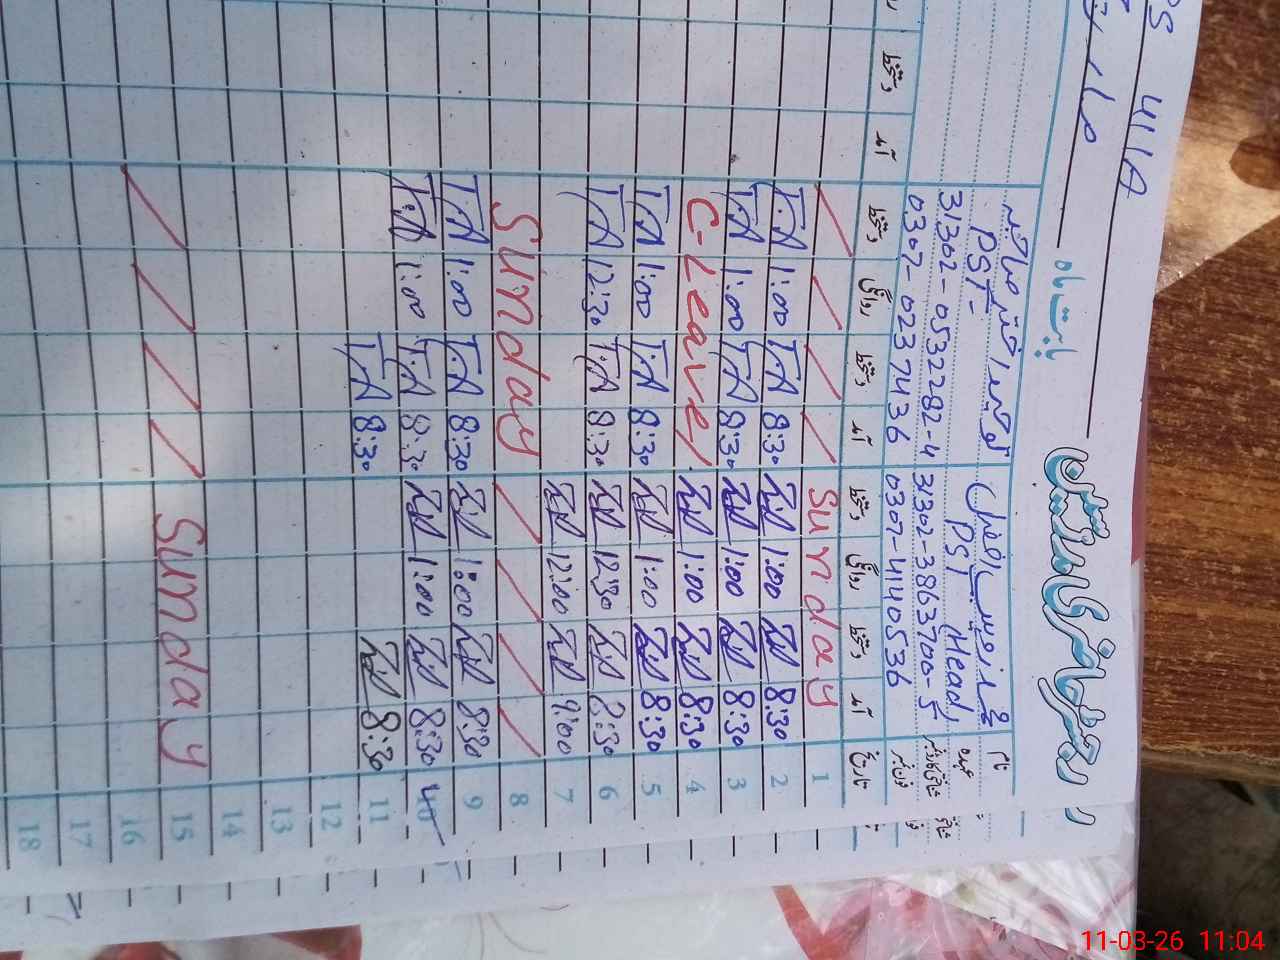 رجسٹر حاضری مدرسین
بابت ماہ
مارچ
نام
عہدہ
شناختی کارڈ نمبر
فون نمبر
PST (Head)
31302-3863700-5
0307-4140536
PST
31302-0532282-4
0302-0237436
تاریخ آمد دستخط روانگی دستخط آمد دستخط روانگی دستخط آمد دستخط
1 Sunday
2 8:30 1:00 8:30 T.A 1:00 T.A
3 8:30 1:00 8:30 T.A 1:00 T.A
4 8:30 1:00 C-Leave
5 8:30 1:00 8:30 T.A 1:00 T.A
6 8:30 12:30 8:30 T.A 12:30 T.A
7 9:00 12:00
8 Sunday
9 8:30 1:00 8:30 T.A 1:00 T.A
10 8:30 1:00 8:30 T.A 1:00 T.A
11 8:30 8:30 T.A
12
13
14
15 Sunday
16
17
18
11-03-26 11:04